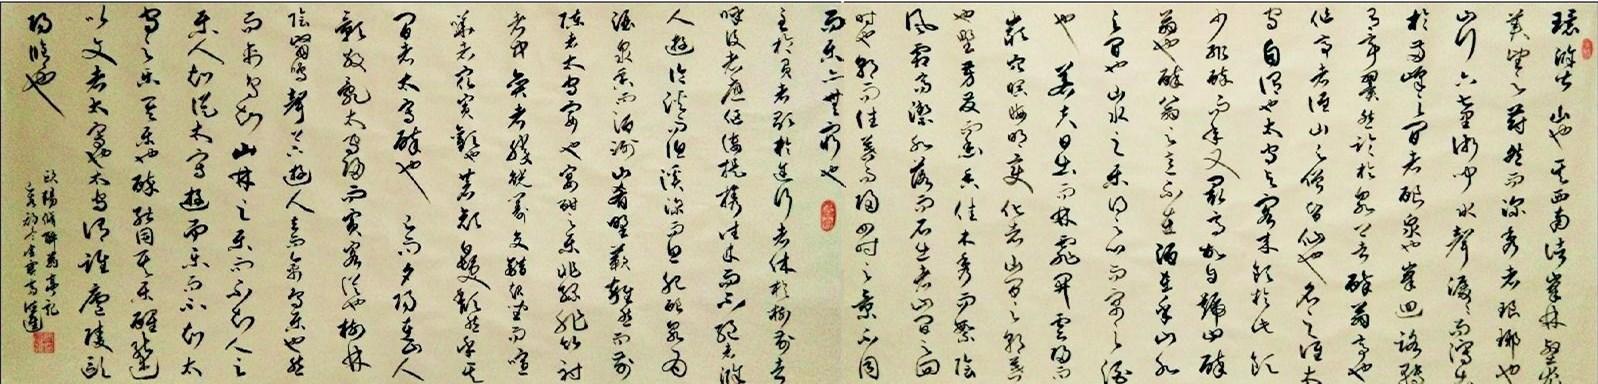 環滁皆山也其西南諸峯林壑尤
美望之蔚然而深秀者琅琊也
山行六七里漸聞水聲潺潺而瀉出
於兩峰之間者釀泉也峯回路轉
有亭翼然臨於泉上者醉翁亭也
作亭者誰山之僧智仙也名之誰太
守自謂也太守與客來飲於此飲
少輒醉而年又最高故自號曰醉
翁也醉翁之意不在酒在乎山水
之間也山水之樂得之心而寓之酒
也 若夫日出而林霏開雲歸而
巖穴暝晦明變化者山間之朝暮
也野芳發而幽香佳木秀而繁陰
風霜高潔水落而石出者山間之四
時也朝而往暮而歸四時之景不同
而樂亦無窮也
至於負者歌於途行者休於樹前者
呼後者應傴僂提攜往來而不絕者滁
人遊也臨溪而漁溪深而魚肥釀泉為
酒泉香而酒洌山肴野蔌雜然而前
陳者太守宴也宴酣之樂非絲非竹射
者中弈者勝觥籌交錯起坐而諠
譁者衆賓歡也蒼顏白髮頹然乎其
間者太守醉也 已而夕陽在山人
影散亂太守歸而賓客從也樹林
陰翳鳴聲上下遊人去而禽鳥樂也然
而禽鳥知山林之樂而不知人之
樂人知從太守遊而樂而不知太
守之樂其樂也醉能同其樂醒能述
以文者太守也太守謂誰廬陵歐
陽脩也
歐陽脩醉翁亭記